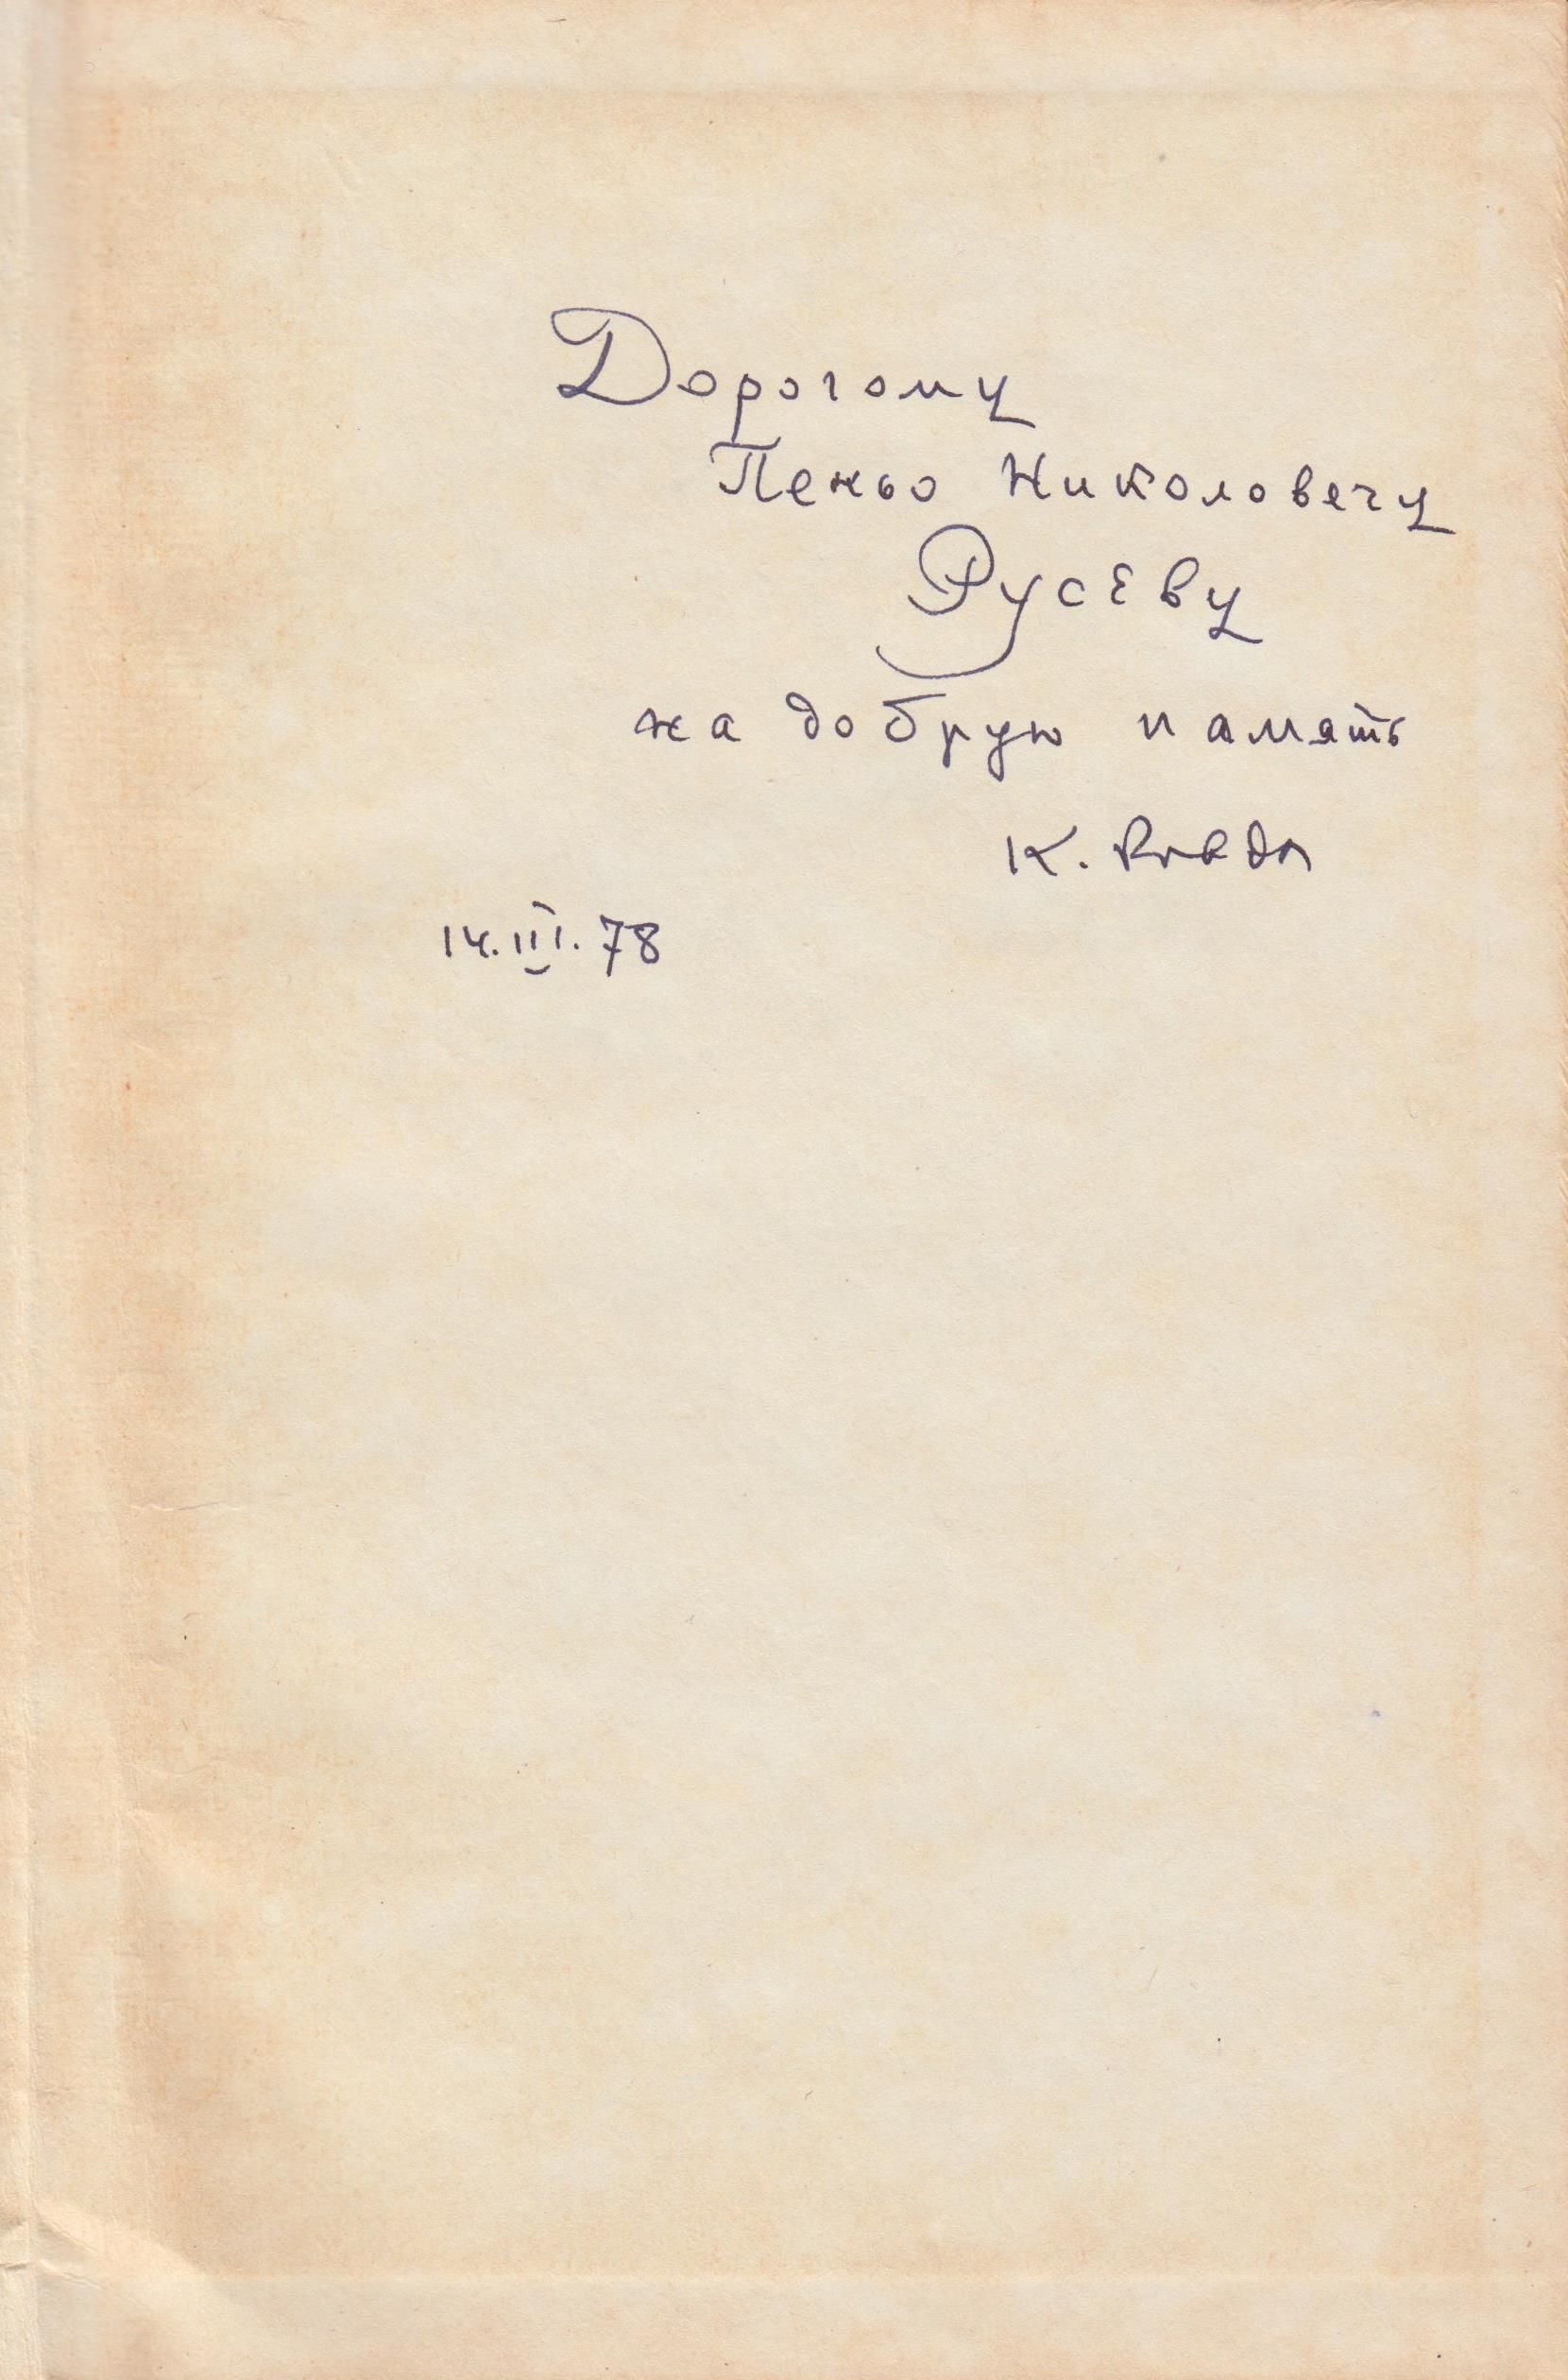 Дорогому
Пеньо Николовичу
Русеву
на добрую память
К. Ровда
14.III.78